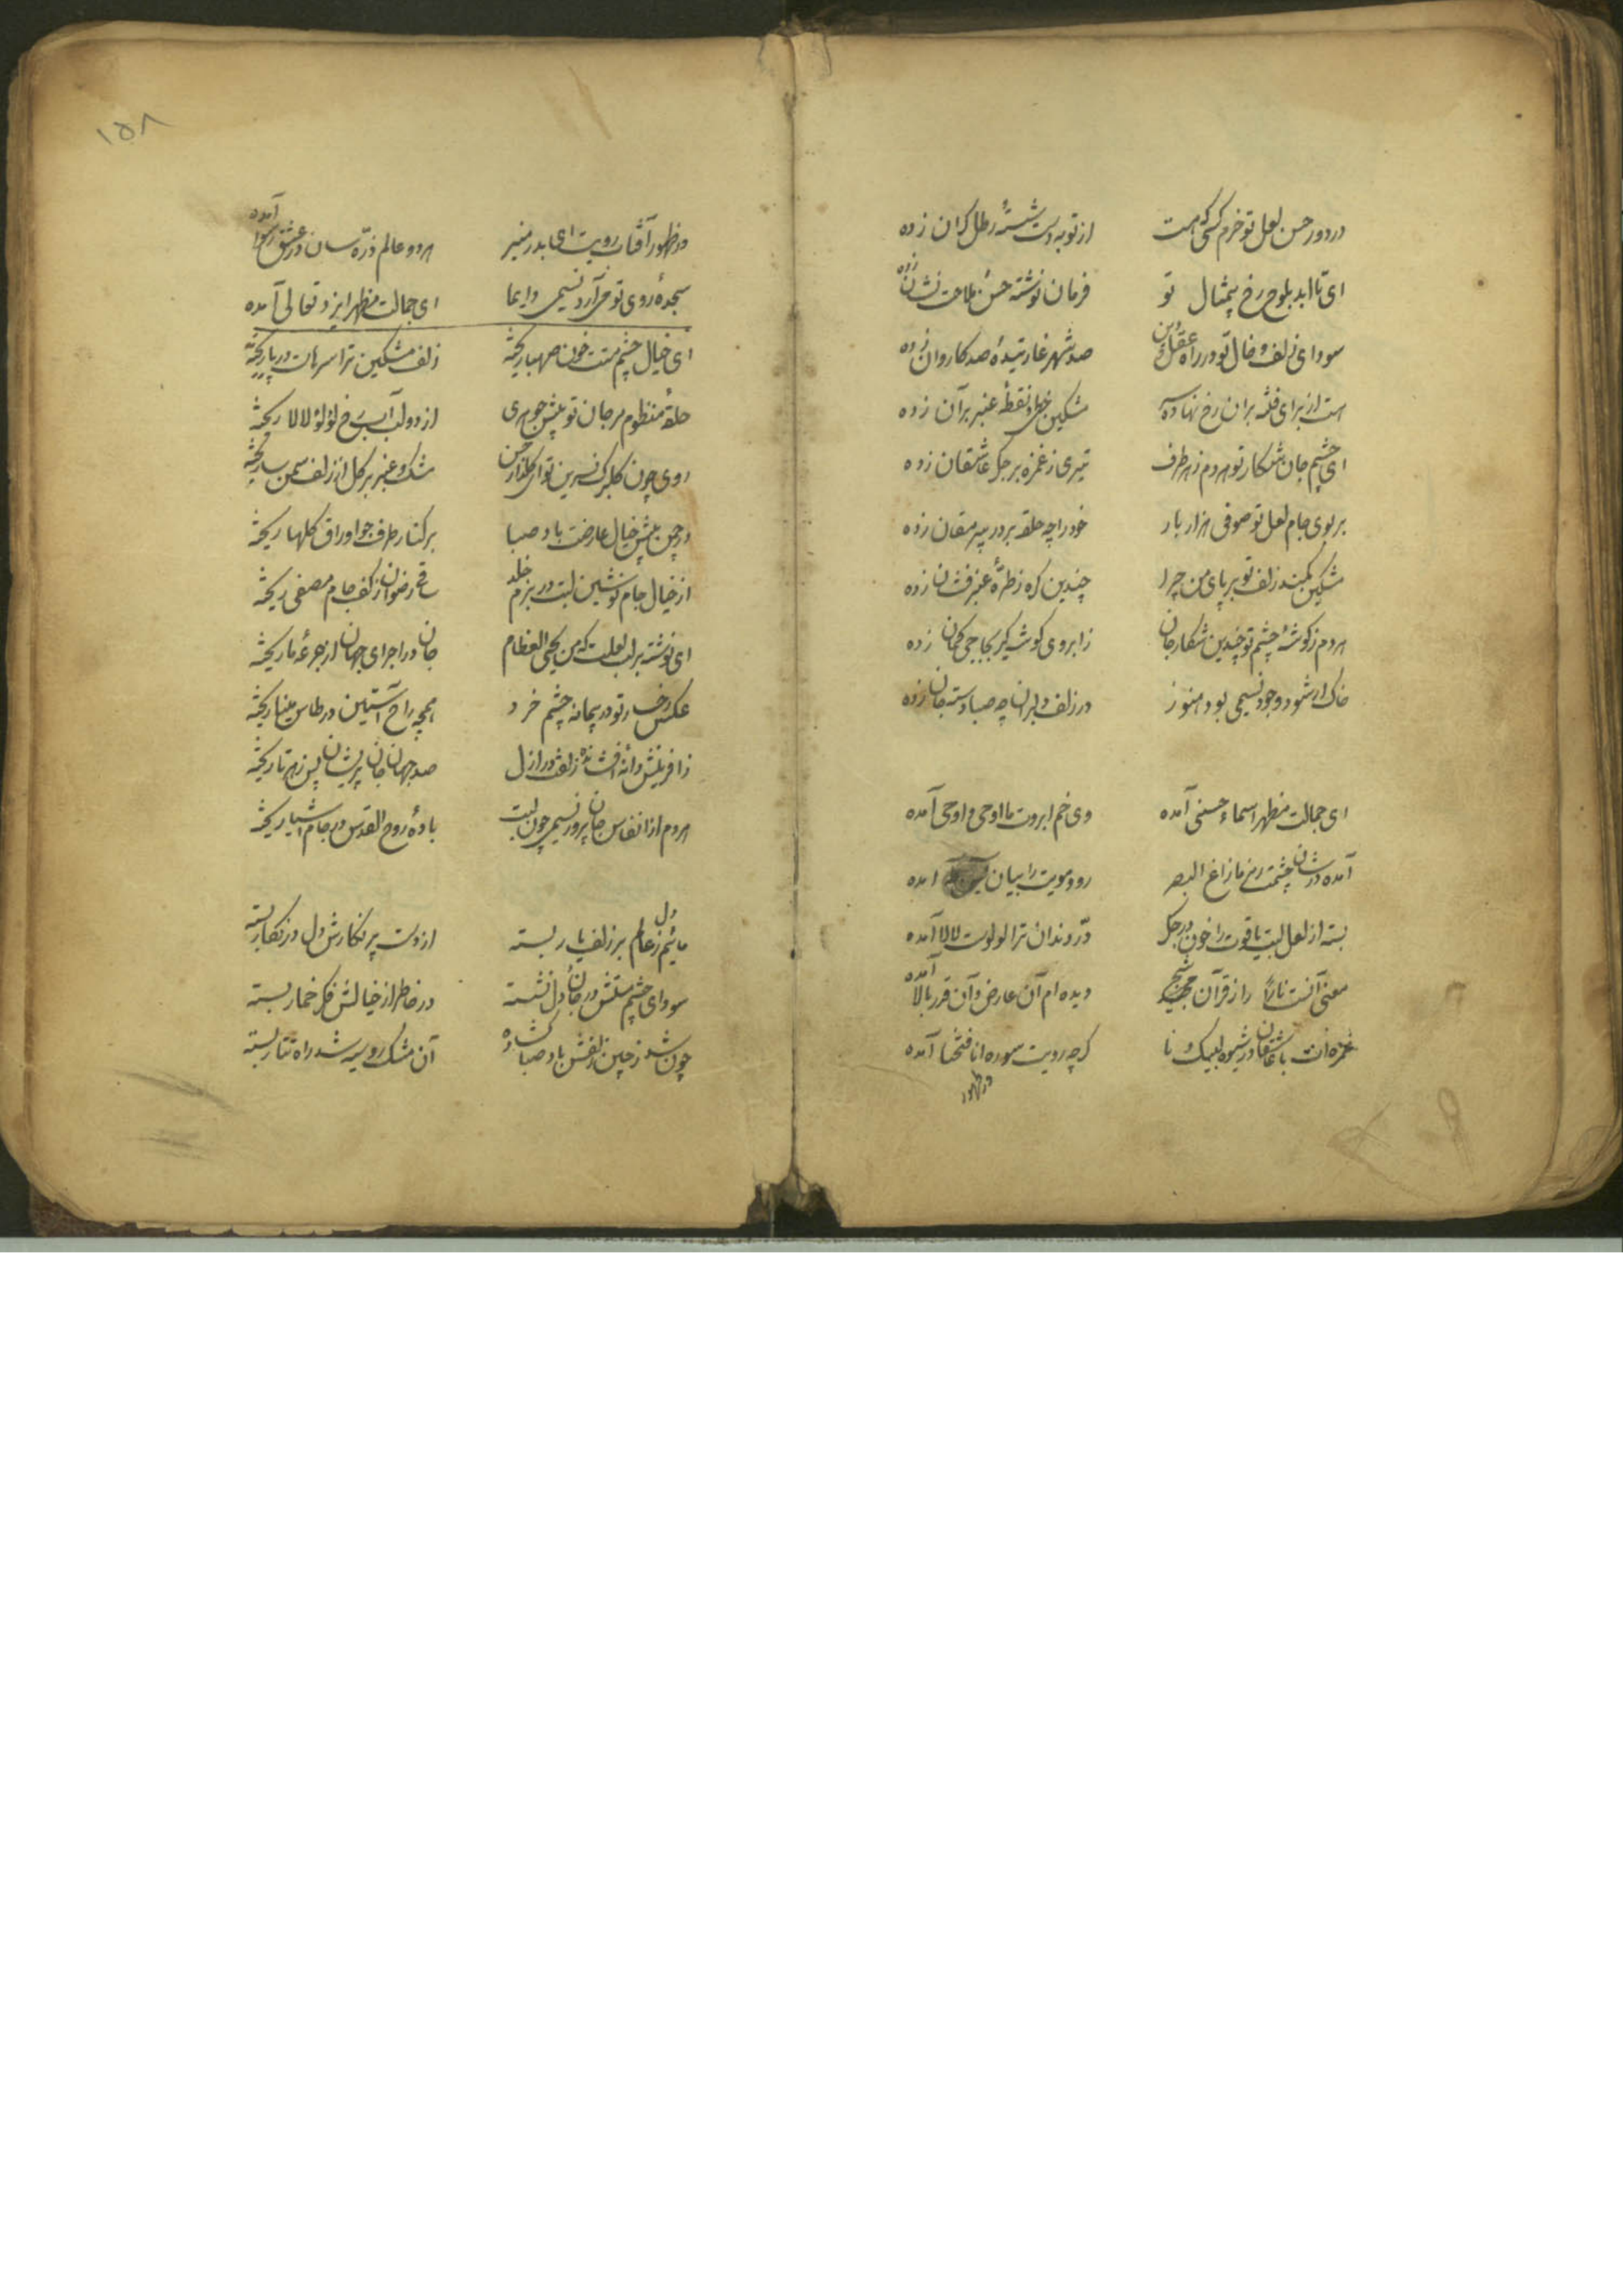 در دور حسن لعل تو خرم کسی که هست از توبه دست شسته و رطل گران زده
ای تا ابد بلوح رخ بیمثال تو فرمان نوشته حسن ملاحت نشان زده
سودای زلف و خال تو در راه عقل و دین صد شهر غارتیده صد کاروان زده
است از برای فتنه بران رخ نهاده مشکین خطی و نقطه عنبر بر آن زده
ای چشم جان شکار تو هر دم ز هر طرف تیری ز غمزه بر جگر عاشقان زده
بر بوی جام لعل تو صوفی هزار بار خود را چه حلقه بر در پیر مغان زده
مشکین کمند زلف تو بر پای من چرا چندین کره ز طره عنبرفشان زده
هر دم ز کوشه چشم تو چندین شکار جان ز ابروی کوشه کیر کمان زده
خاک ار شود وجود نسیمی بود هنوز در زلف دلبران چه صبا دست جان زده
ای جمالت مظهر اسماء حسنی آمده وی خم ابروت ما اوحی و اوحی آمده
آمده در شان چشمت رمز ما زاغ البصر رو و مویت را بیان آمده
بسته از لعل لبت یاقوت را خون در جکر درّ دندان ترا لولوت لالا آمده
معنی آنست نارًا را ز قرآن مجید دیده ام آن عارض و آن قد و بالا آمده
غمزه ات با عاشقان در شیوه کرچه رویت سوره انا فتحنا آمده
در ظهور
۱۵۸
در ظهور آفتاب رویت ای بدر منیر هر دو عالم ذرّه سان در عشق رسوا آمده
سجده روی تو می آرد نسیمی دایما ای جمالت مظهر ایزد تعالی آمده
ای خیال چشم مستت خون صهبا ریخته زلف مشکین ترا سرهاست در پا ریخته
حلقه منظوم مرجان تو پیش جوهری از دو لب آب رخ لؤلؤ لالا ریخته
روی چون کلبرک نسرین تو ای کلزار حسن مشک و عنبر بر کل از زلف سمن سا ریخته
در چمن پیش خیال عارضت باد صبا بر کنار طرف جو اوراق کلها ریخته
از خیال جام نوشین لبت در بزم خلد ساقی رضوان ز کف جام مصفی ریخته
ای نوشته بر لب لعلت که من یحیی العظام جان در اجزای جهان از جرعه ما ریخته
عکس رخسار تو در پیمانه چشم خرد همچه راح آتشین در طاس مینا ریخته
ز افرینش دانه افشانده زلفت در ازل صد جهان جان پریشان پس ز هر تا ریخته
هر دم از انفاس جان پرور نسیمی چون لبت باده روح القدس در جام اشیا ریخته
مائیم دل ز عالم بر زلف یار بسته از دست پر نکارش دل در نکار بسته
سودای چشم مستش در جان و دل نشسته در خاطر از خیالش فکر خمار بسته
چون شد ز چین زلفش باد صبا کشاده آن مشک رو سیه شد راه تتار بسته